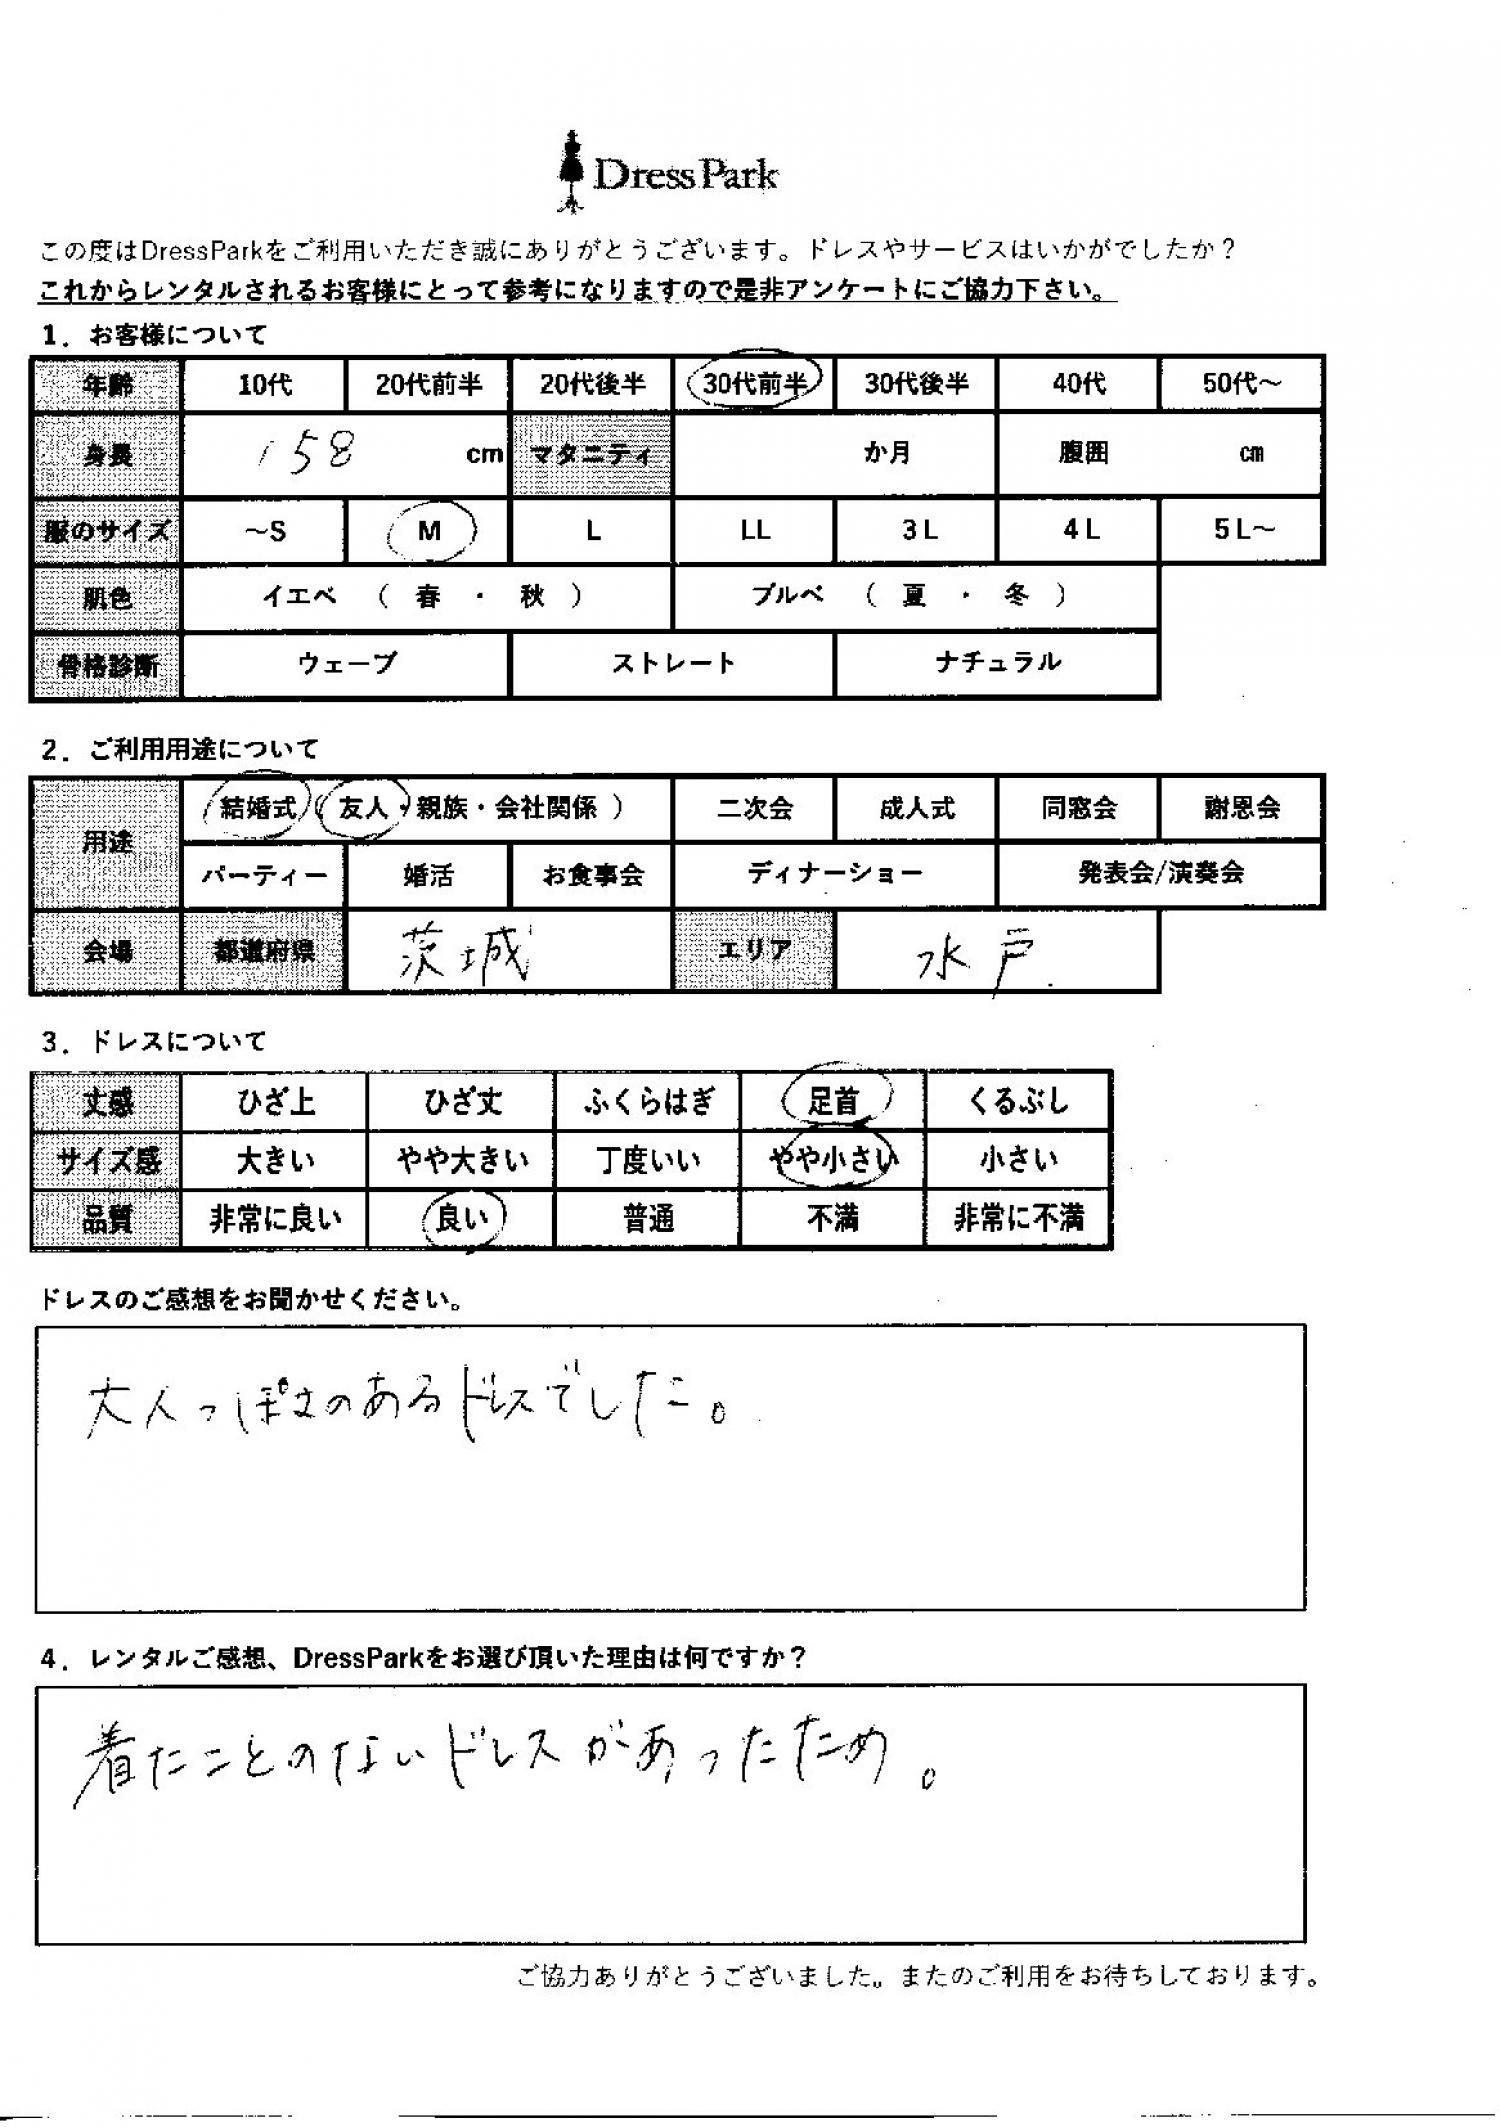 DressPark
この度はDressParkをご利用いただき誠にありがとうございます。ドレスやサービスはいかがでしたか？
これからレンタルされるお客様にとって参考になりますので是非アンケートにご協力下さい。
1．お客様について
年齢 10代 20代前半 20代後半 30代前半 30代後半 40代 50代～
身長 158 cm マタニティ か月 腹囲 cm
服のサイズ ～S M L LL 3L 4L 5L～
肌色 イエベ （ 春 ・ 秋 ） ブルベ （ 夏 ・ 冬 ）
骨格診断 ウェーブ ストレート ナチュラル
2．ご利用用途について
用途 結婚式（友人・親族・会社関係 ） 二次会 成人式 同窓会 謝恩会
パーティー 婚活 お食事会 ディナーショー 発表会/演奏会
会場 都道府県 茨城 エリア 水戸
3．ドレスについて
丈感 ひざ上 ひざ丈 ふくらはぎ 足首 くるぶし
サイズ感 大きい やや大きい 丁度いい やや小さい 小さい
品質 非常に良い 良い 普通 不満 非常に不満
ドレスのご感想をお聞かせください。
大人っぽさのあるドレスでした。
4．レンタルご感想、DressParkをお選び頂いた理由は何ですか？
着たことのないドレスがあったため。
ご協力ありがとうございました。またのご利用をお待ちしております。